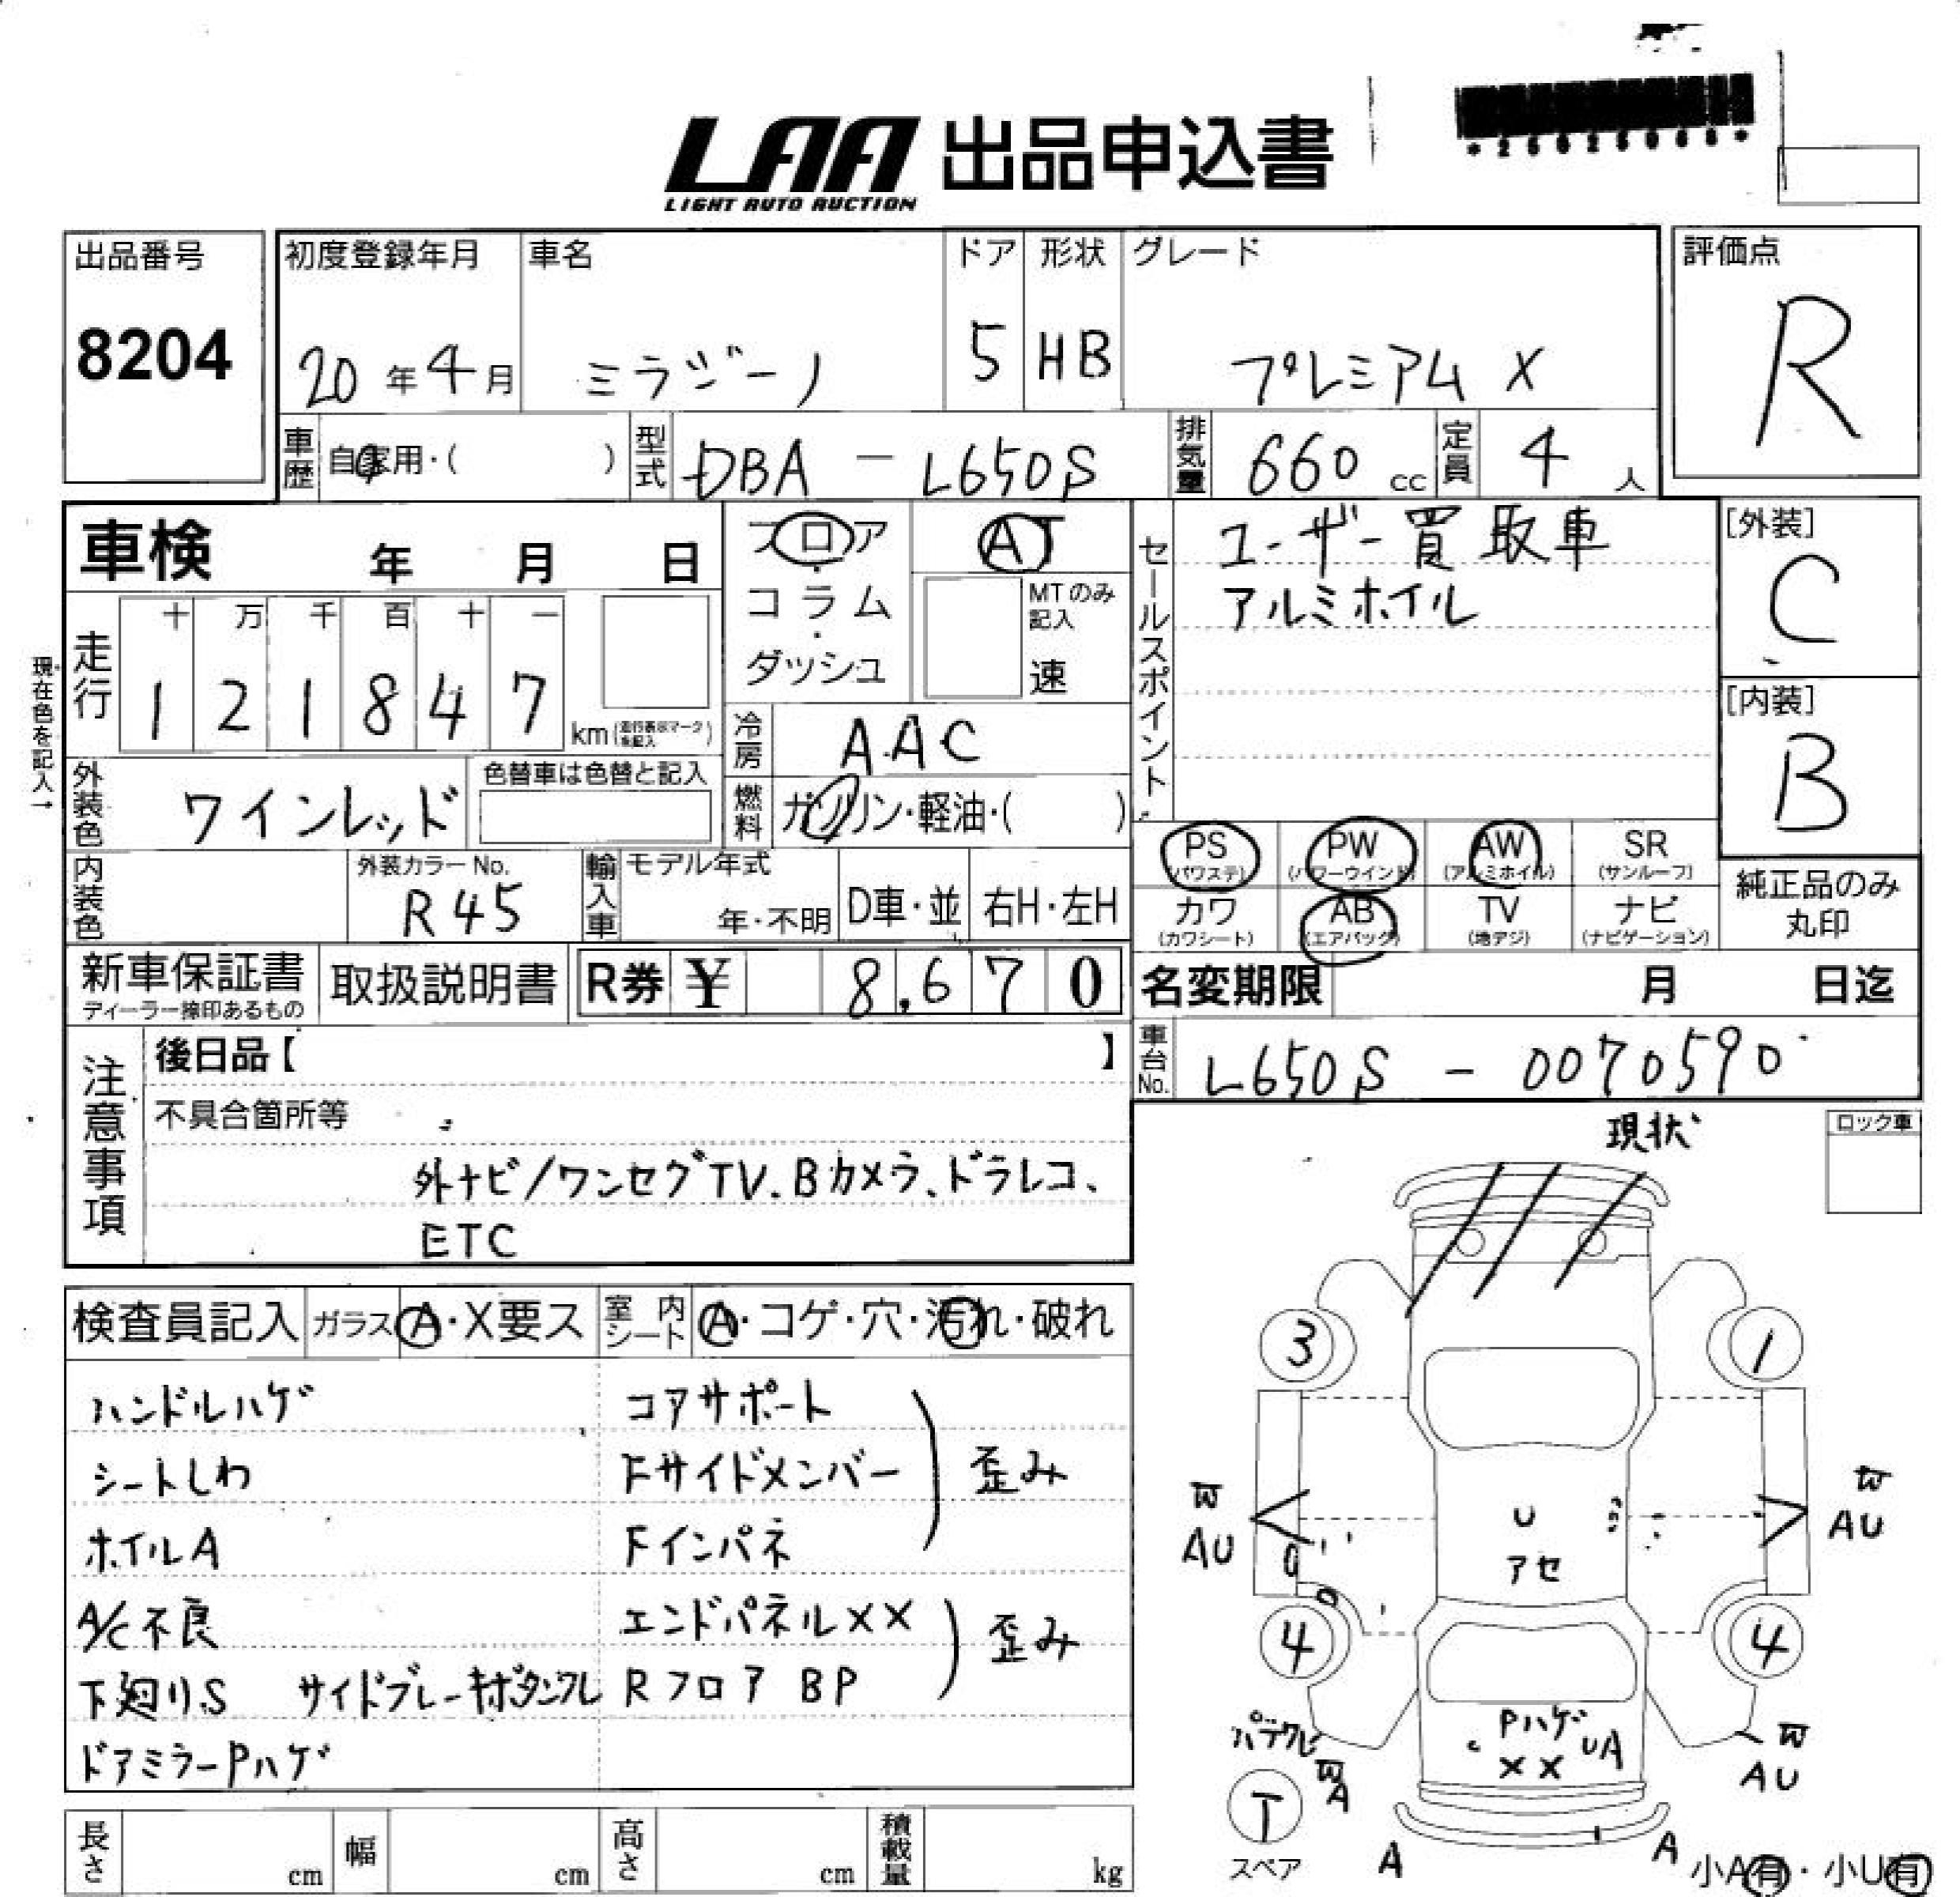 LAA 出品申込書
LIGHT AUTO AUCTION
出品番号
8204
初度登録年月
20年4月
車名
ミラジーノ
ドア
5
形状
HB
グレード
プレミアム X
評価点
R
車歴
自家用・( )
型式
DBA - L650S
排気量
660 cc
定員
4 人
車検 年 月 日
フロア・コラム・ダッシュ
AT
MTのみ記入
速
セールスポイント
ユーザー買取車
アルミホイル
[外装]
C
[内装]
B
現在色を記入→
走行
十 万 千 百 十 一
1 2 1 8 4 7
km(走行表示マークを記入)
冷房
AAC
外装色
ワインレッド
色替車は色替と記入
燃料
ガソリン・軽油・( )
PS
(パワステ)
PW
(パワーウインド)
AW
(アルミホイル)
SR
(サンルーフ)
カワ
(カワシート)
AB
(エアバッグ)
TV
(地デジ)
ナビ
(ナビゲーション)
純正品のみ
丸印
内装色
外装カラーNo.
R45
輸入車
モデル年式
年・不明
D車・並
右H・左H
新車保証書
ディーラー捺印あるもの
取扱説明書
R券 ¥ 8,670
名変期限 月 日迄
車台No.
L650S - 0070590
注意事項
後日品【 】
不具合箇所等
外ナビ/ワンセグTV.Bカメラ、ドラレコ、
ETC
現状
ロック車
検査員記入
ガラス
A・X要ス
室内シート
A・コゲ・穴・汚れ・破れ
ハンドルハゲ
シートしわ
ホイルA
A/C不良
下廻りS サイドブレーキボタンワレ
ドアミラーPハゲ
コアサポート
Fサイドメンバー
Fインパネ
歪み
エンドパネル××
Rフロア BP
歪み
3
1
W
AU
U
アセ
W
AU
4
4
Pハゲ
××
UA
W
AU
W
A
T
スペア
A
A
小A有・小U有
長さ cm
幅 cm
高さ cm
積載量 kg